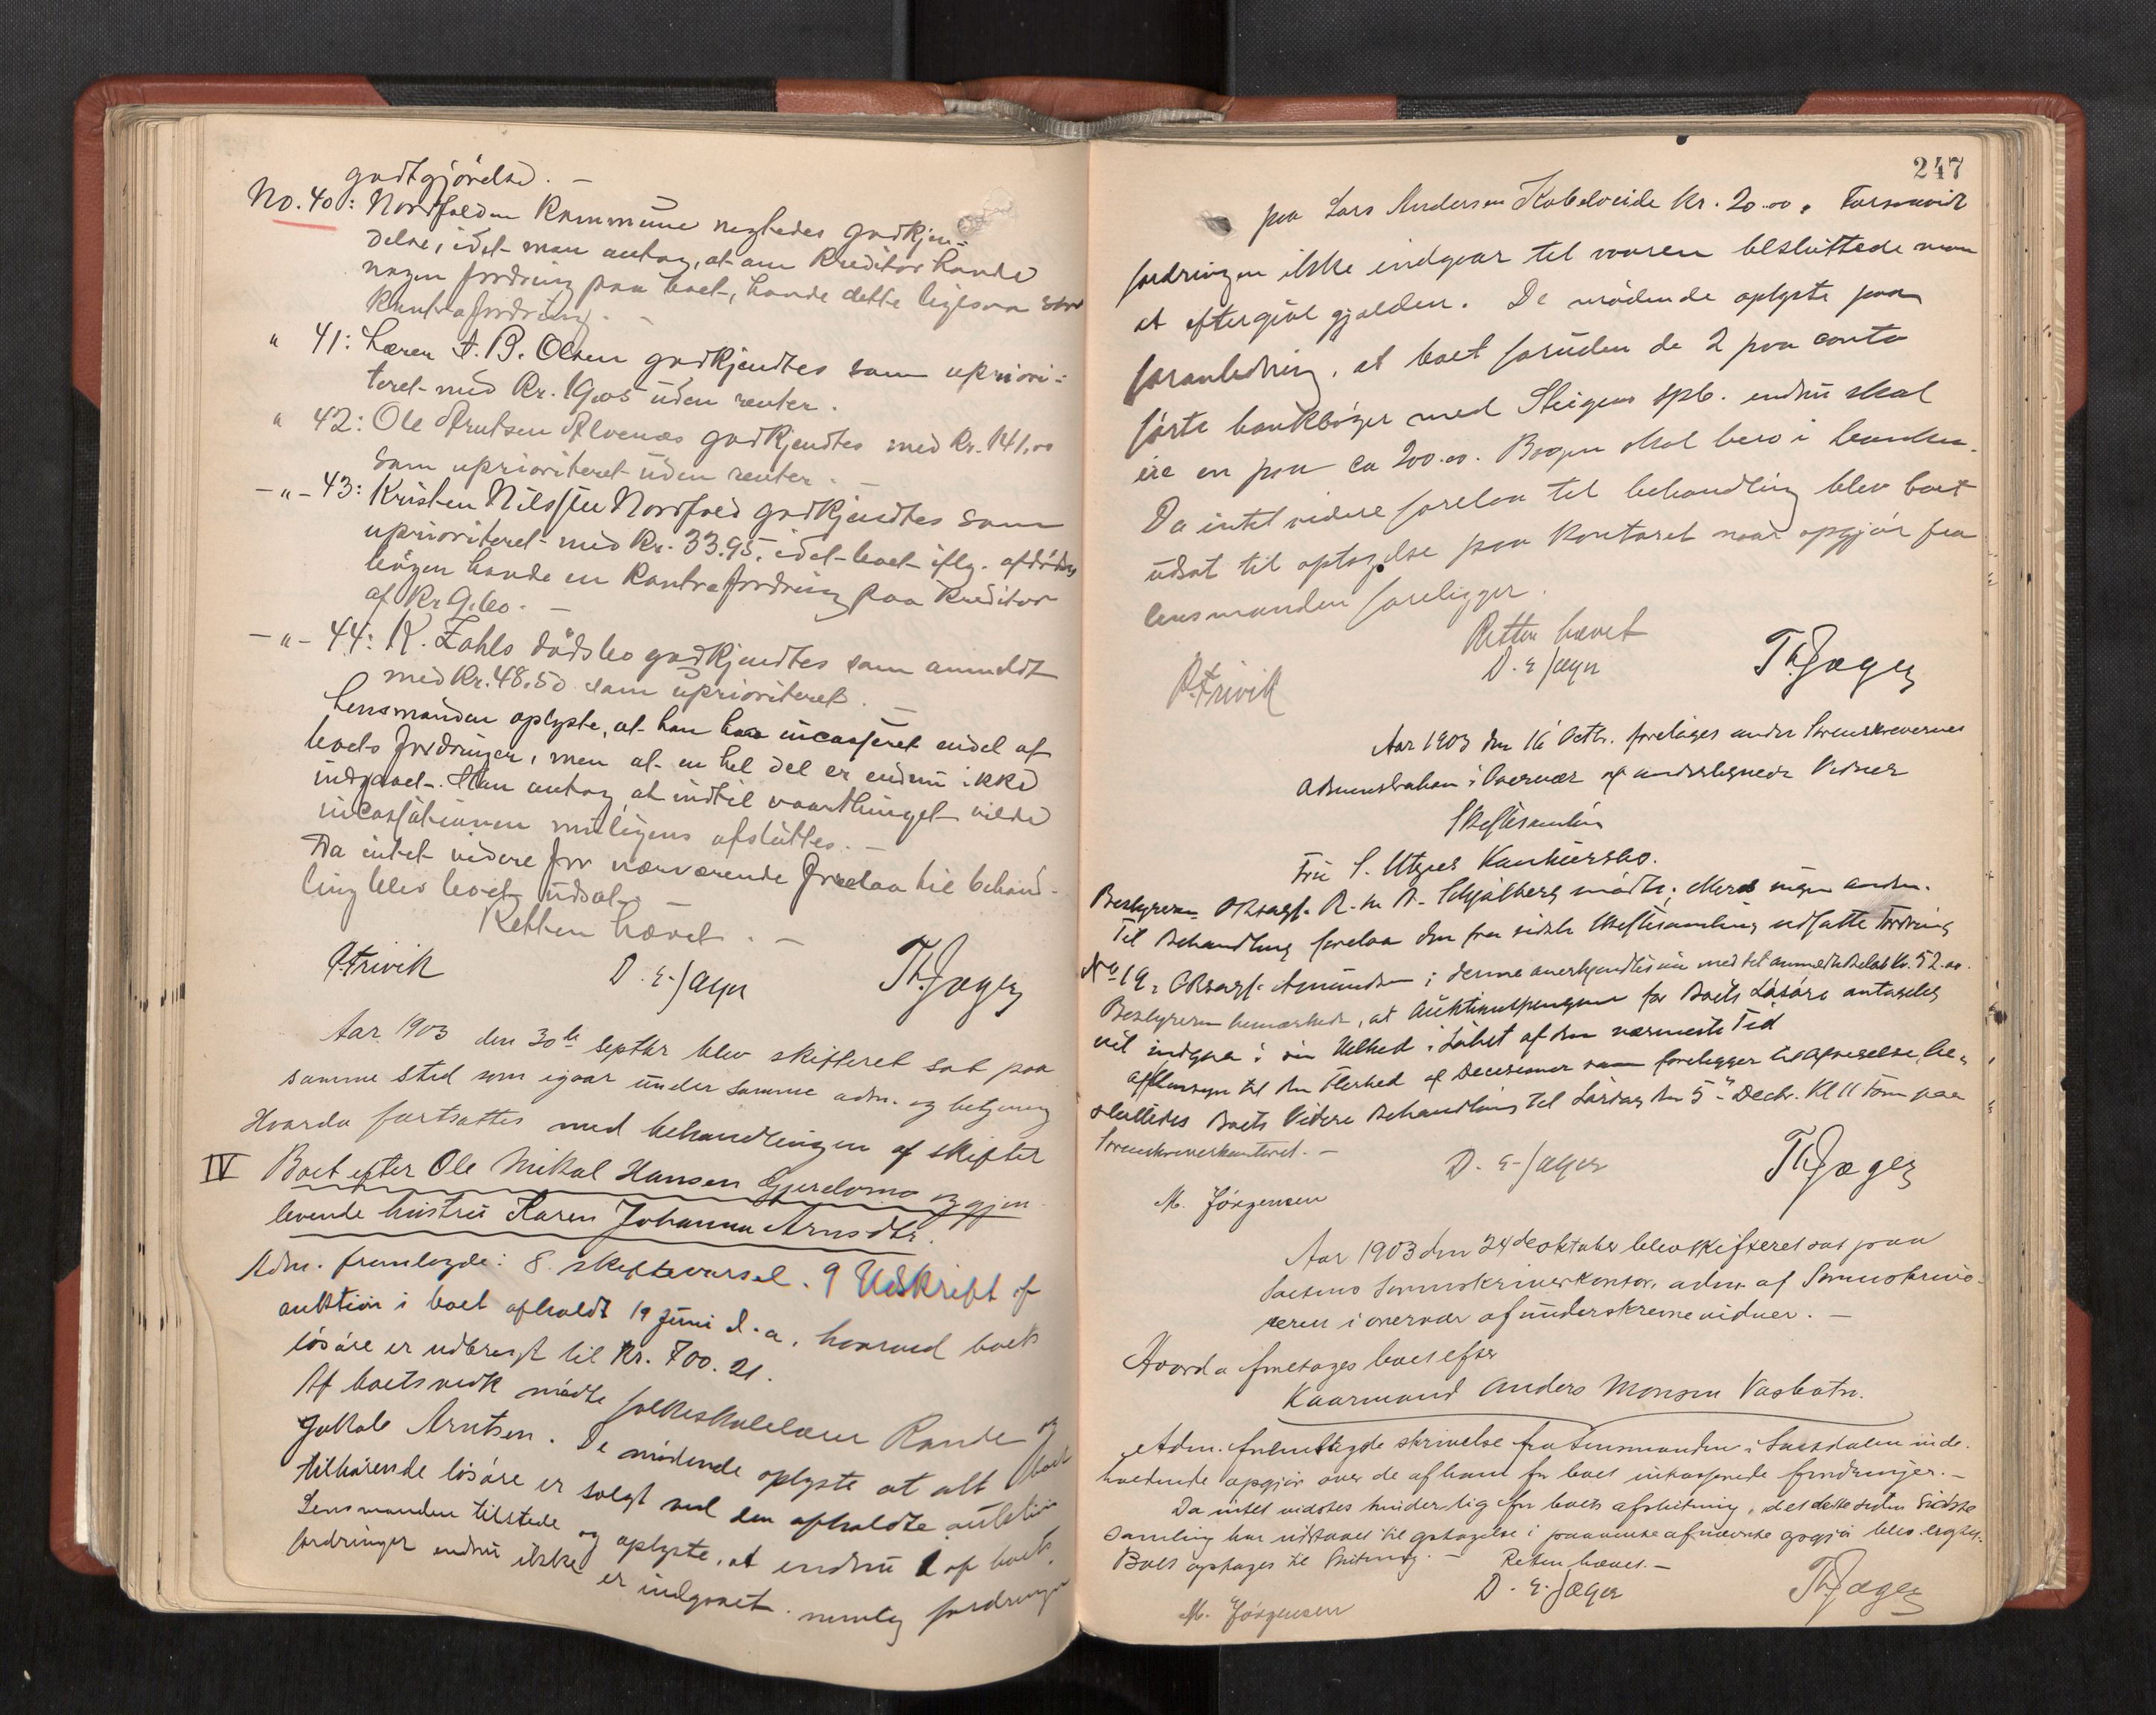 godtgjörelse. –
No. 40: Nordfolden Kommune negtedes godkjen-
delse, idet man antog, at om Kreditor havde
nogen fordring paa boet, havde dette ligesaa stor
Kontrafordring. –
" 41: Lærer A. B. Olsen godkjendtes som upriori-
teret med Kr. 19,05 uden renter.
" 42: Ole Arntsen Alvenæs godkjendtes med Kr. 141,00
som uprioriteret uden renter. –
– " – 43: Kristen Nilssen Nordfold godkjendtes som
uprioriteret med Kr. 33.95, idet boet iflg. afdödes
böger havde en Kontrafordring paa Kreditor
af Kr. 9.60. –
– " – 44: K. Zahls dödsbo godkjendtes som anmeldt
med Kr. 48.50 som uprioriteret. –
Lensmanden oplyste, at han har incasseret endel af
boets fordringer, men at en hel del er endnu ikke
indgaaet. Han antog, at indtil vaarthinget vilde
incassationen muligens afsluttes. –
Da intet videre for nærværende forelaa til behand-
ling blev boet udsat.
Retten hævet. –
P. Trivik D. E. Jæger Th. Jæger
Aar 1903 den 30te septbr blev skifteret sat paa
samme sted som igaar under samme adm. og betjening
Hvorda fortsattes med behandlingen af skifter
IV Boet efter Ole Mikal Hansen og gjen-
levende hustru Karen Johanna Arnsdtr.
Adm. fremlagde: 8. skiftevarsel. 9 Udskrift af
auktion i boet afholdt 19 Juni d. a. hvorved boets
lösöre er udbragt til Kr. 700.21.
Af boets vedk mødte folkeskolelærer Rande og
Jakob Arntsen. De mødende oplyste at alt boet
tilhørende løsøre er solgt ved den afholdte auktion
Lensmanden tilstede og oplyste, at endnu 1 af boets
fordringer endnu ikke er indgaaet. nemlig fordringen
247
paa Lars Andersen Kobelveide kr. 20.00. Forsaavidt
fordringen ikke indgaar til vaaren besluttede man
at eftergive gjælden. De mødende oplyste paa
foranledning, at boet foruden de 2 paa conto
førte bankbøger med Steigens spb. endnu skal
eie en paa ca 200.00. Bogen skal bero i banken.
Da intet videre forelaa til behandling blev boet
udsat til optagelse paa kontoret naar opgjør fra
lensmanden foreligger.
Retten hævet
P. Trivik D. E. Jæger Th. Jæger
Aar 1903 den 16 Octbr. foretages under Sorenskriverens
Administration i Overvær af undertegnede Vidner
Skiftesamling
i Konkursbo.
Bestyreren ORsagf. R. M. B. Schjølberg mødte; Mens ingen anden.
Til Behandling forelaa den fra sidste Skiftesamling udsatte Fordring
No 19, ORsagf. Amundsen; denne anerkjendtes nu med det anmeldte Beløb Kr. 52.00.
Bestyreren bemærkede, at Auktionspengene for Boets Løsøre antagelig
vil indgaa i sin Helhed i Løbet af den nærmeste Tid
Af Hensyn til den Flerhed af Decisioner som foreligger til Afgivelse, be-
sluttedes Boets Videre Behandling til Lørdag den 5te Decbr. Kl 11 Form paa
Sorenskriverkontoret. –
M. Jørgensen D. E. Jæger Th. Jæger
Aar 1903 den 24de oktober blev skifteret sat paa
Sorenskriverkontor, adm. af Sorenskrive-
ren i overvær af underskrevne vidner. –
Hvorda foretages boet efter
Kaarmand Anders Monsen Vasbotn.
Adm. fremlagde skrivelse fra Lensmanden i inde-
holdende opgjör over de af ham for boet inkasserede fordringer. –
Da intet vidstes hinderlig for boets afslutning, idet dette siden sidste
samling har udstaaet til optagelse i paavente af nævnte opgjör blev
Boet optages til slutning. – Retten hævet. –
M. Jørgensen D. E. Jæger Th. Jæger